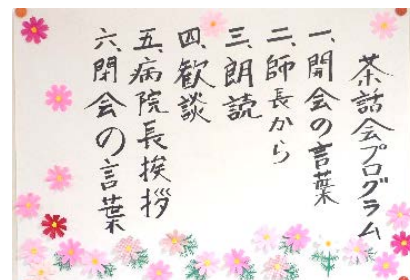 茶話会プログラム
一、開会の言葉
二、師長から
三、朗読
四、歓談
五、病院長挨拶
六、閉会の言葉